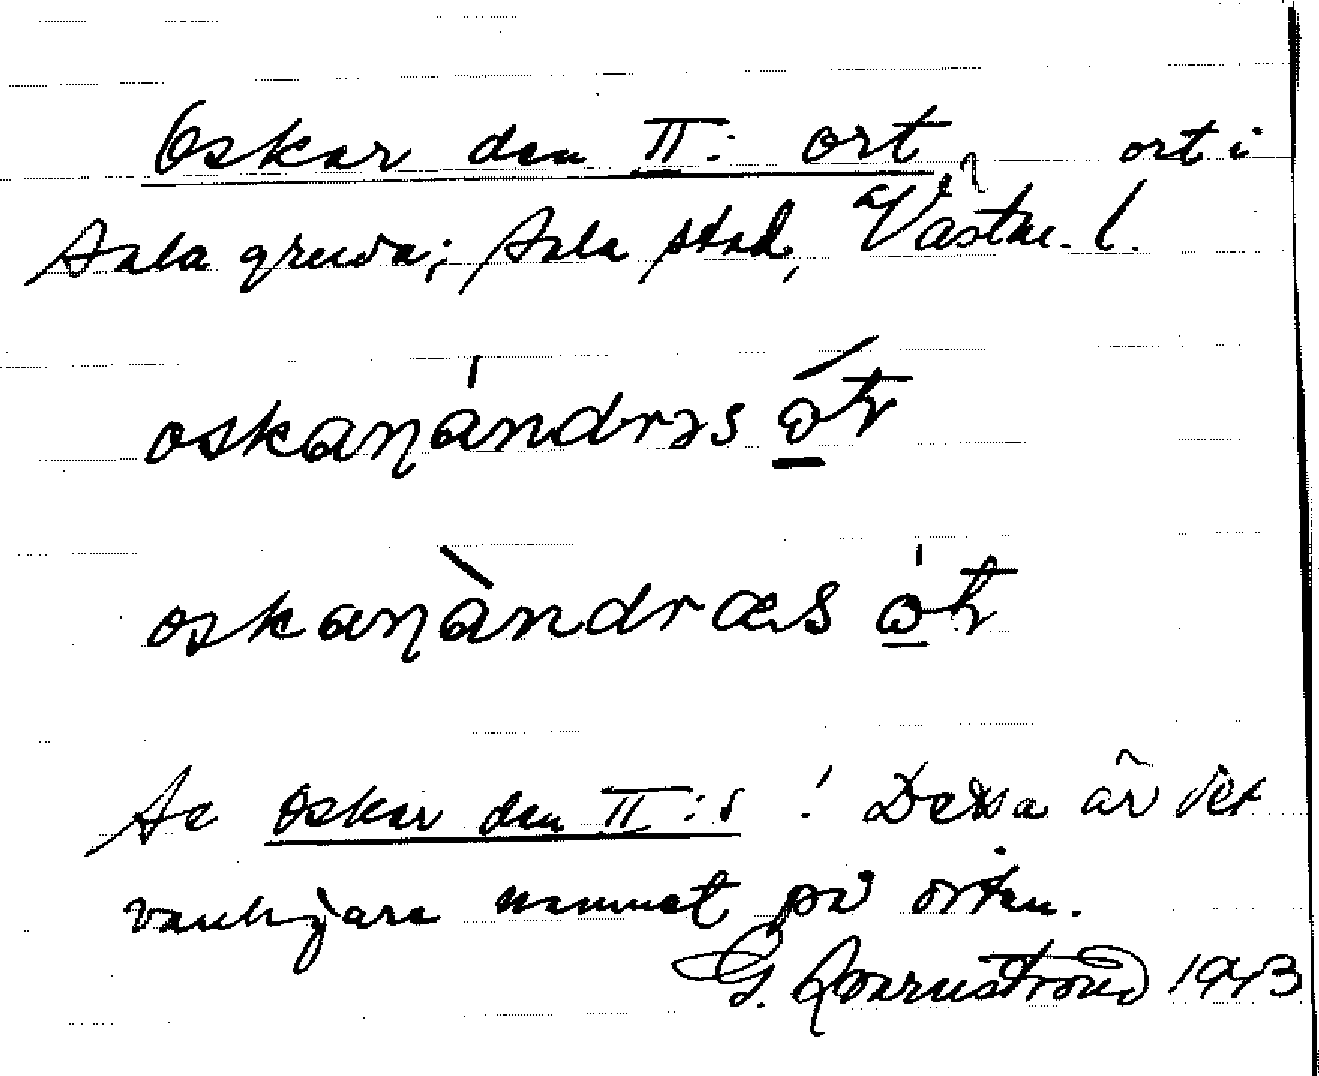 Oskar den II: ort, ort i
Sala gruva; Sala stad, Västm. l.
oskaŋándrəs ót
oskaŋàndræs ót
Se Oskar den II:s! Dessa är det
vanligare namnet på orten.
G. Qvarnström 1943